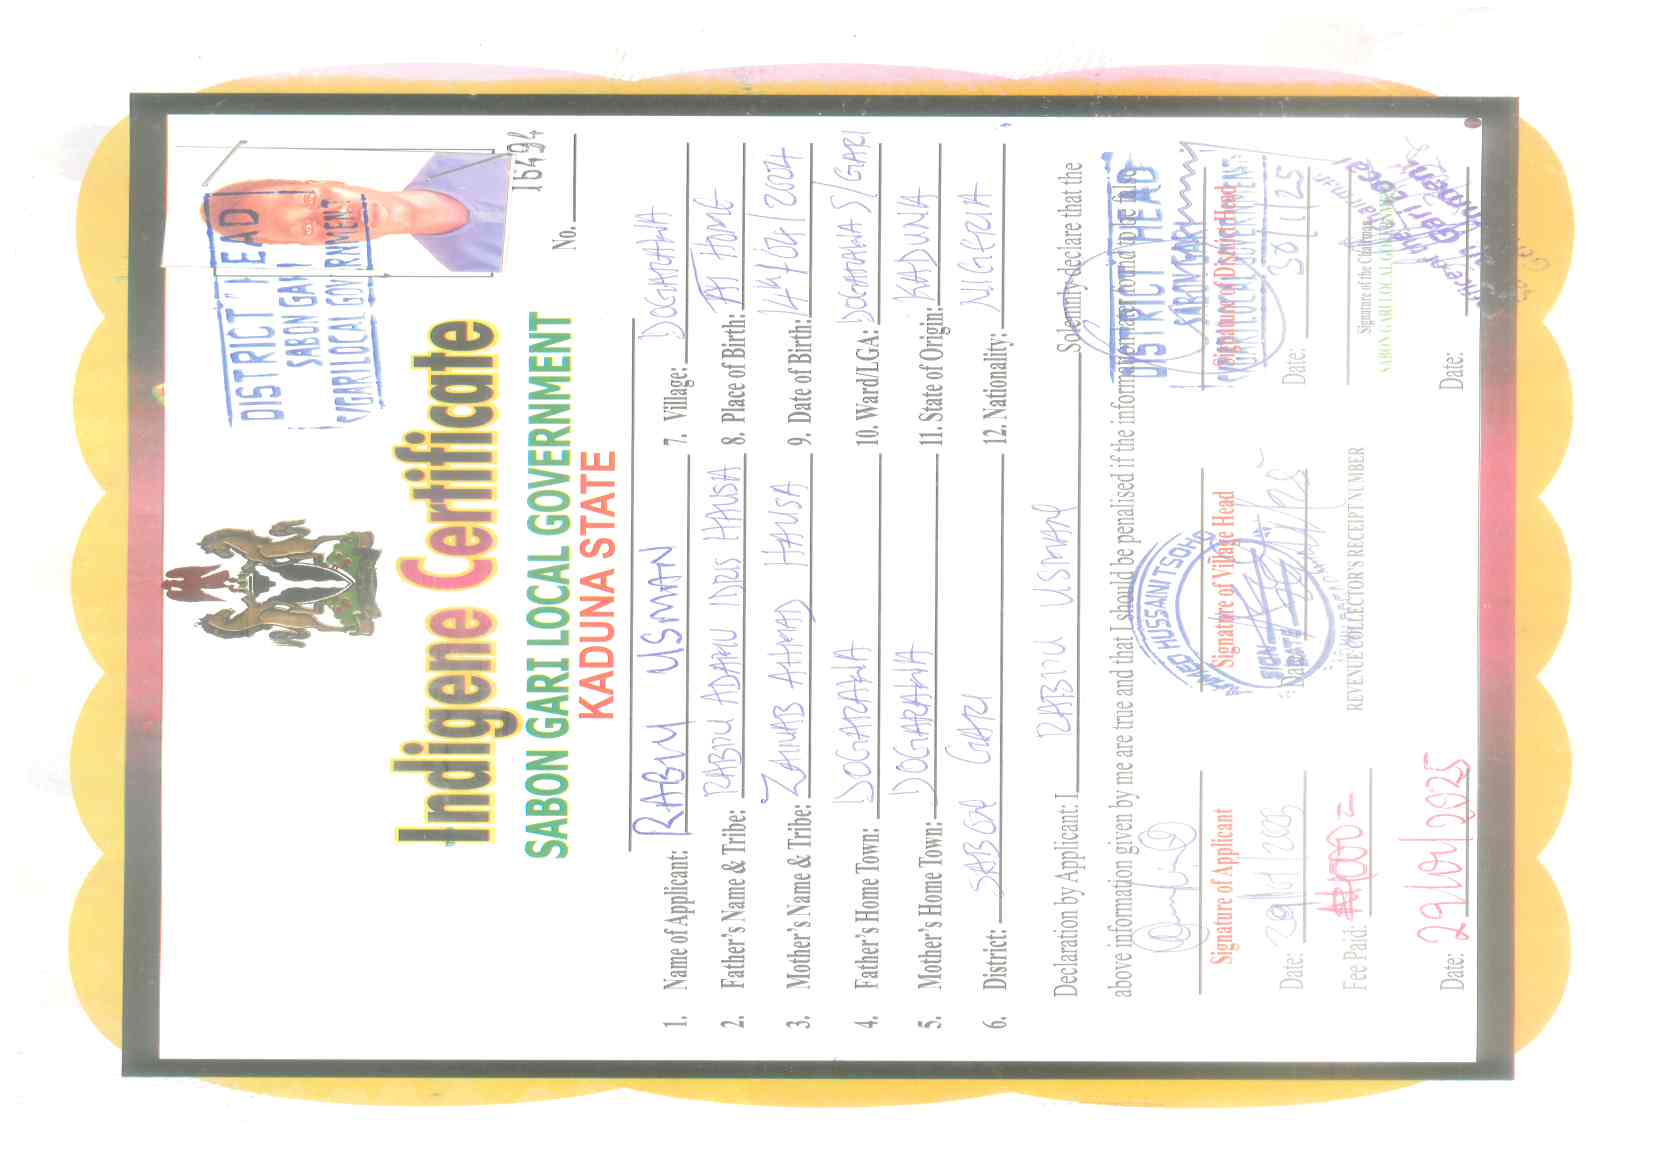 DISTRICT HEAD
SABON GARI
S/GARI LOCAL GOVERNMENT
16494
No.
Indigene Certificate
SABON GARI LOCAL GOVERNMENT
KADUNA STATE
1. Name of Applicant: RABIU USMAN
7. Village: DOGARAWA
2. Father's Name & Tribe: RABIU ADAMU IDRIS HAUSA
8. Place of Birth: AT HOME
3. Mother's Name & Tribe: ZAINAB AHMAD HAUSA
9. Date of Birth:
4. Father's Home Town: DOGARAWA
10. Ward/LGA: DOGARAWA S/GARI
5. Mother's Home Town: DOGARAWA
11. State of Origin: KADUNA
6. District: SABON GARI
12. Nationality: NIGERIA
Declaration by Applicant: I RABIU USMAN Solemnly declare that the
above information given by me are true and that I should be penalised if the information are found to be false
Signature of Applicant
Signature of Village Head
Signature of District Head
DISTRICT HEAD
HUSSAINI TSOHO
SIGN
DATE
Date: 29/01/2025
Date:
Date: 30/1/25
Fee Paid: ₦1000=
REVENUE COLLECTOR'S RECEIPT NUMBER
Signature of the Chairman
SABON GARI LOCAL GOVERNMENT
Date: 29/01/2025
Date: